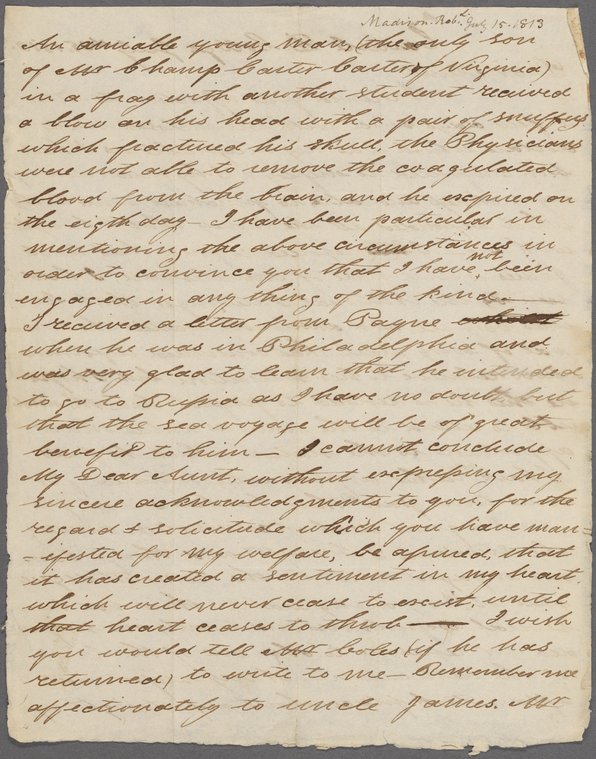 Madison. Rob.t July 15. 1813
An amiable young man, (the only son
of Mr Champ Carter Carter of Virginia)
in a fray with another student received
a blow on his head with a pair of snuffers
which fractured his skull, the Physicians
were not able to remove the coagulated
blood from the brain, and he expired on
the eigth day — I have been particular in
mentioning the above circumstances in
order to convince you that I have not been
engaged in any thing of the kind —
I received a letter from Payne
when he was in Philadelphia and
was very glad to learn that he intended
to go to Russia as I have no doubt but
that the sea voyage will be of great
benefit to him — I cannot conclude
My Dear Aunt, without expressing my
sincere acknowledgments to you, for the
regard & solicitude which you have man-
-ifested for my welfare, be assured, that
it has created a sentiment in my heart
which will never cease to exist, until
that heart ceases to throb — I wish
you would tell Mr Coles (if he has
returned) to write to me — Remember me
affectionately to uncle James. Mr